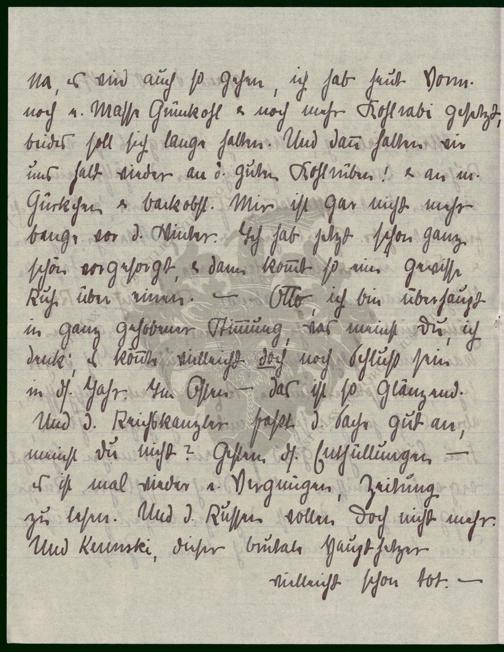 na, es wird auch so gehen, ich hab heut Vorm.
noch e. Masse Grünkohl & noch mehr Kohlrabi gesetzt,
beides soll sich lange halten. Und dann halten wir
uns halt wieder an d. guten Kohlrüben! & an m.
Gürkchen & Backobst. Mir ist gar nicht mehr
bange vor d. Winter. Ich hab jetzt schon ganz
schön vorgesorgt, & dann kommt so eine gewisse
Ruhe über einen. — Otto, ich bin überhaupt
in ganz gehobener Stimmung, was meinst du, ich
denk, es könnte vielleicht doch noch Schluss sein
in ds. Jahr. Im Osten — das ist so glänzend.
Und d. Reichskanzler fasst d. Sache gut an,
meinst du nicht? Gestern ds. Enthüllungen —
es ist mal wieder e. Vergnügen, Zeitung
zu lesen. Und d. Russen wollen doch nicht mehr.
Und Kerenski, dieser brutale Haupthetzer
vielleicht schon tot. —